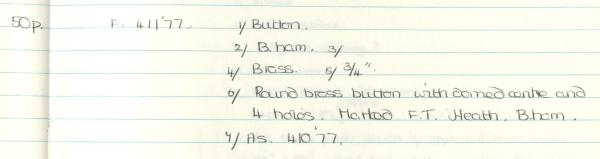 50p. F. 411'77. 1/ Button.
2/ B.ham. 3/
4/ Brass. 5/ 3/4".
6/ Round brass button with domed centre and
4 holes. Marked F.T. Heath. B.ham.
7/ As. 410'77.